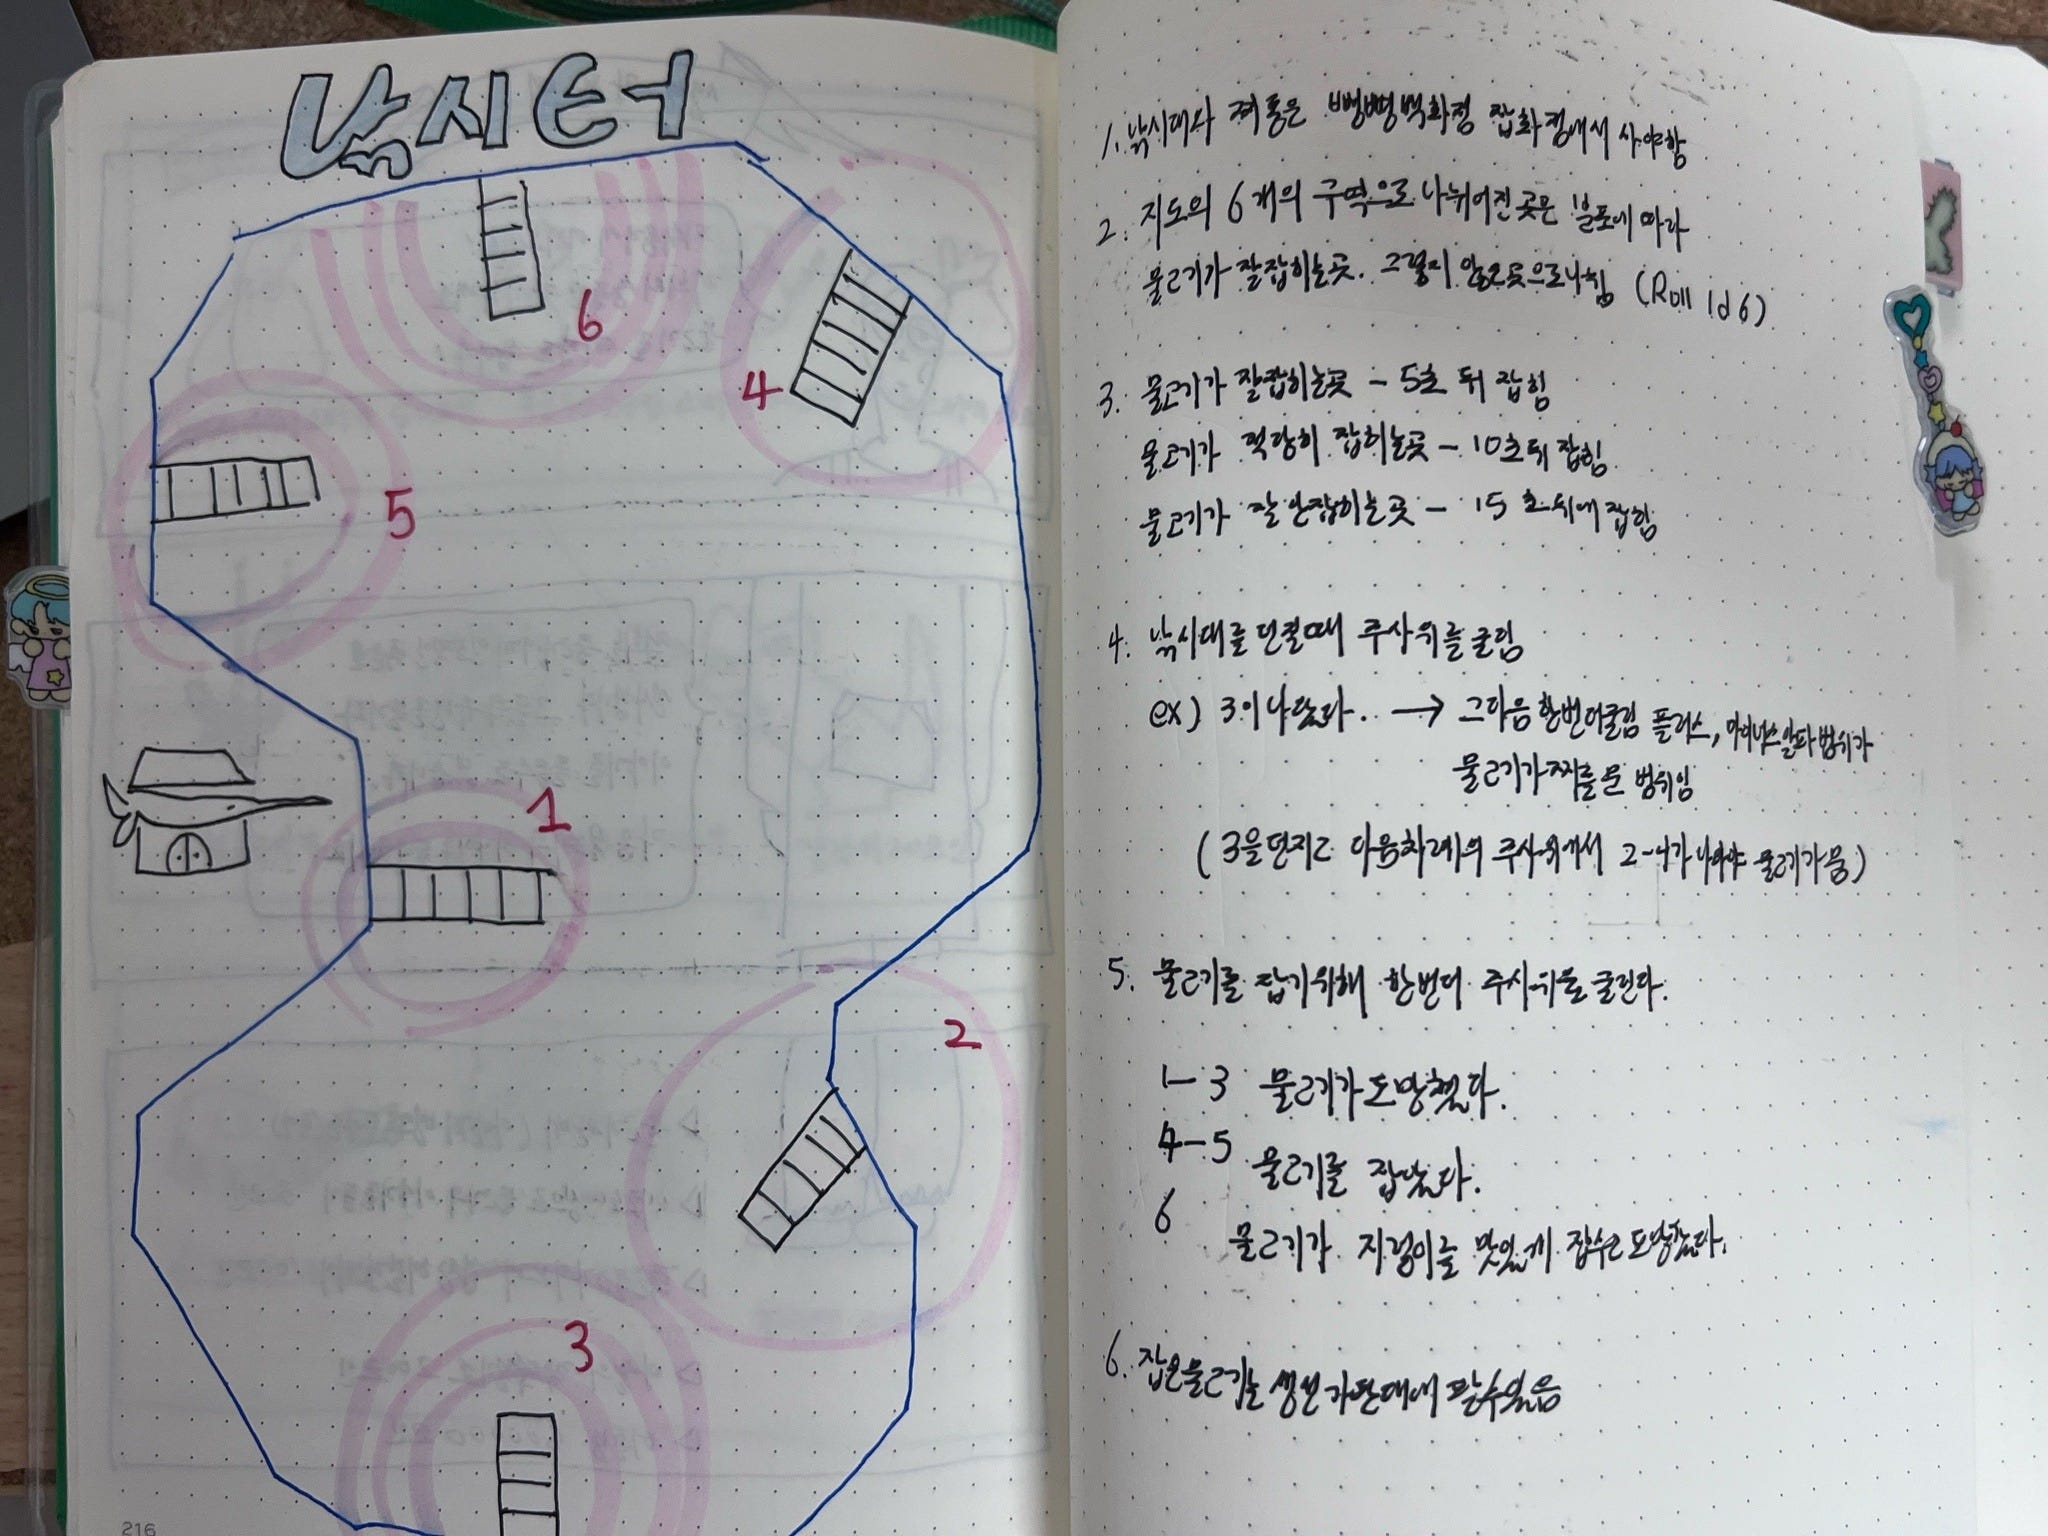 낚시터
6
4
5
1
2
3
216
1. 낚시대와 찌통은 뻥뻥백화점 잡화점에서 사야함
2. 지도의 6개의 구역으로 나뉘어진 곳은 분포에 따라
물고기가 잘잡히는곳. 그렇지 않은곳으로나뉨 (Roll 1d6)
3. 물고기가 잘잡히는곳 - 5초 뒤 잡힘
물고기가 적당히 잡히는곳 - 10초뒤 잡힘
물고기가 잘 안잡히는곳 - 15초 뒤에 잡힘
4. 낚시대를 던질때 주사위를 굴림
ex) 3이 나왔다. → 그다음 한번더굴림 플러스, 마이너스알파범위가
물고기가 찌를 문 범위임
(3을 던지고 다음차례의 주사위에서 2-4가 나와야 물고기가 뭄)
5. 물고기를 잡기위해 한번더 주사위를 굴린다.
1-3 물고기가 도망쳤다.
4-5 물고기를 잡았다.
6 물고기가 지렁이를 맛있게 잡수고 도망갔다.
6. 잡은물고기는 생선가판대에 팔수있음